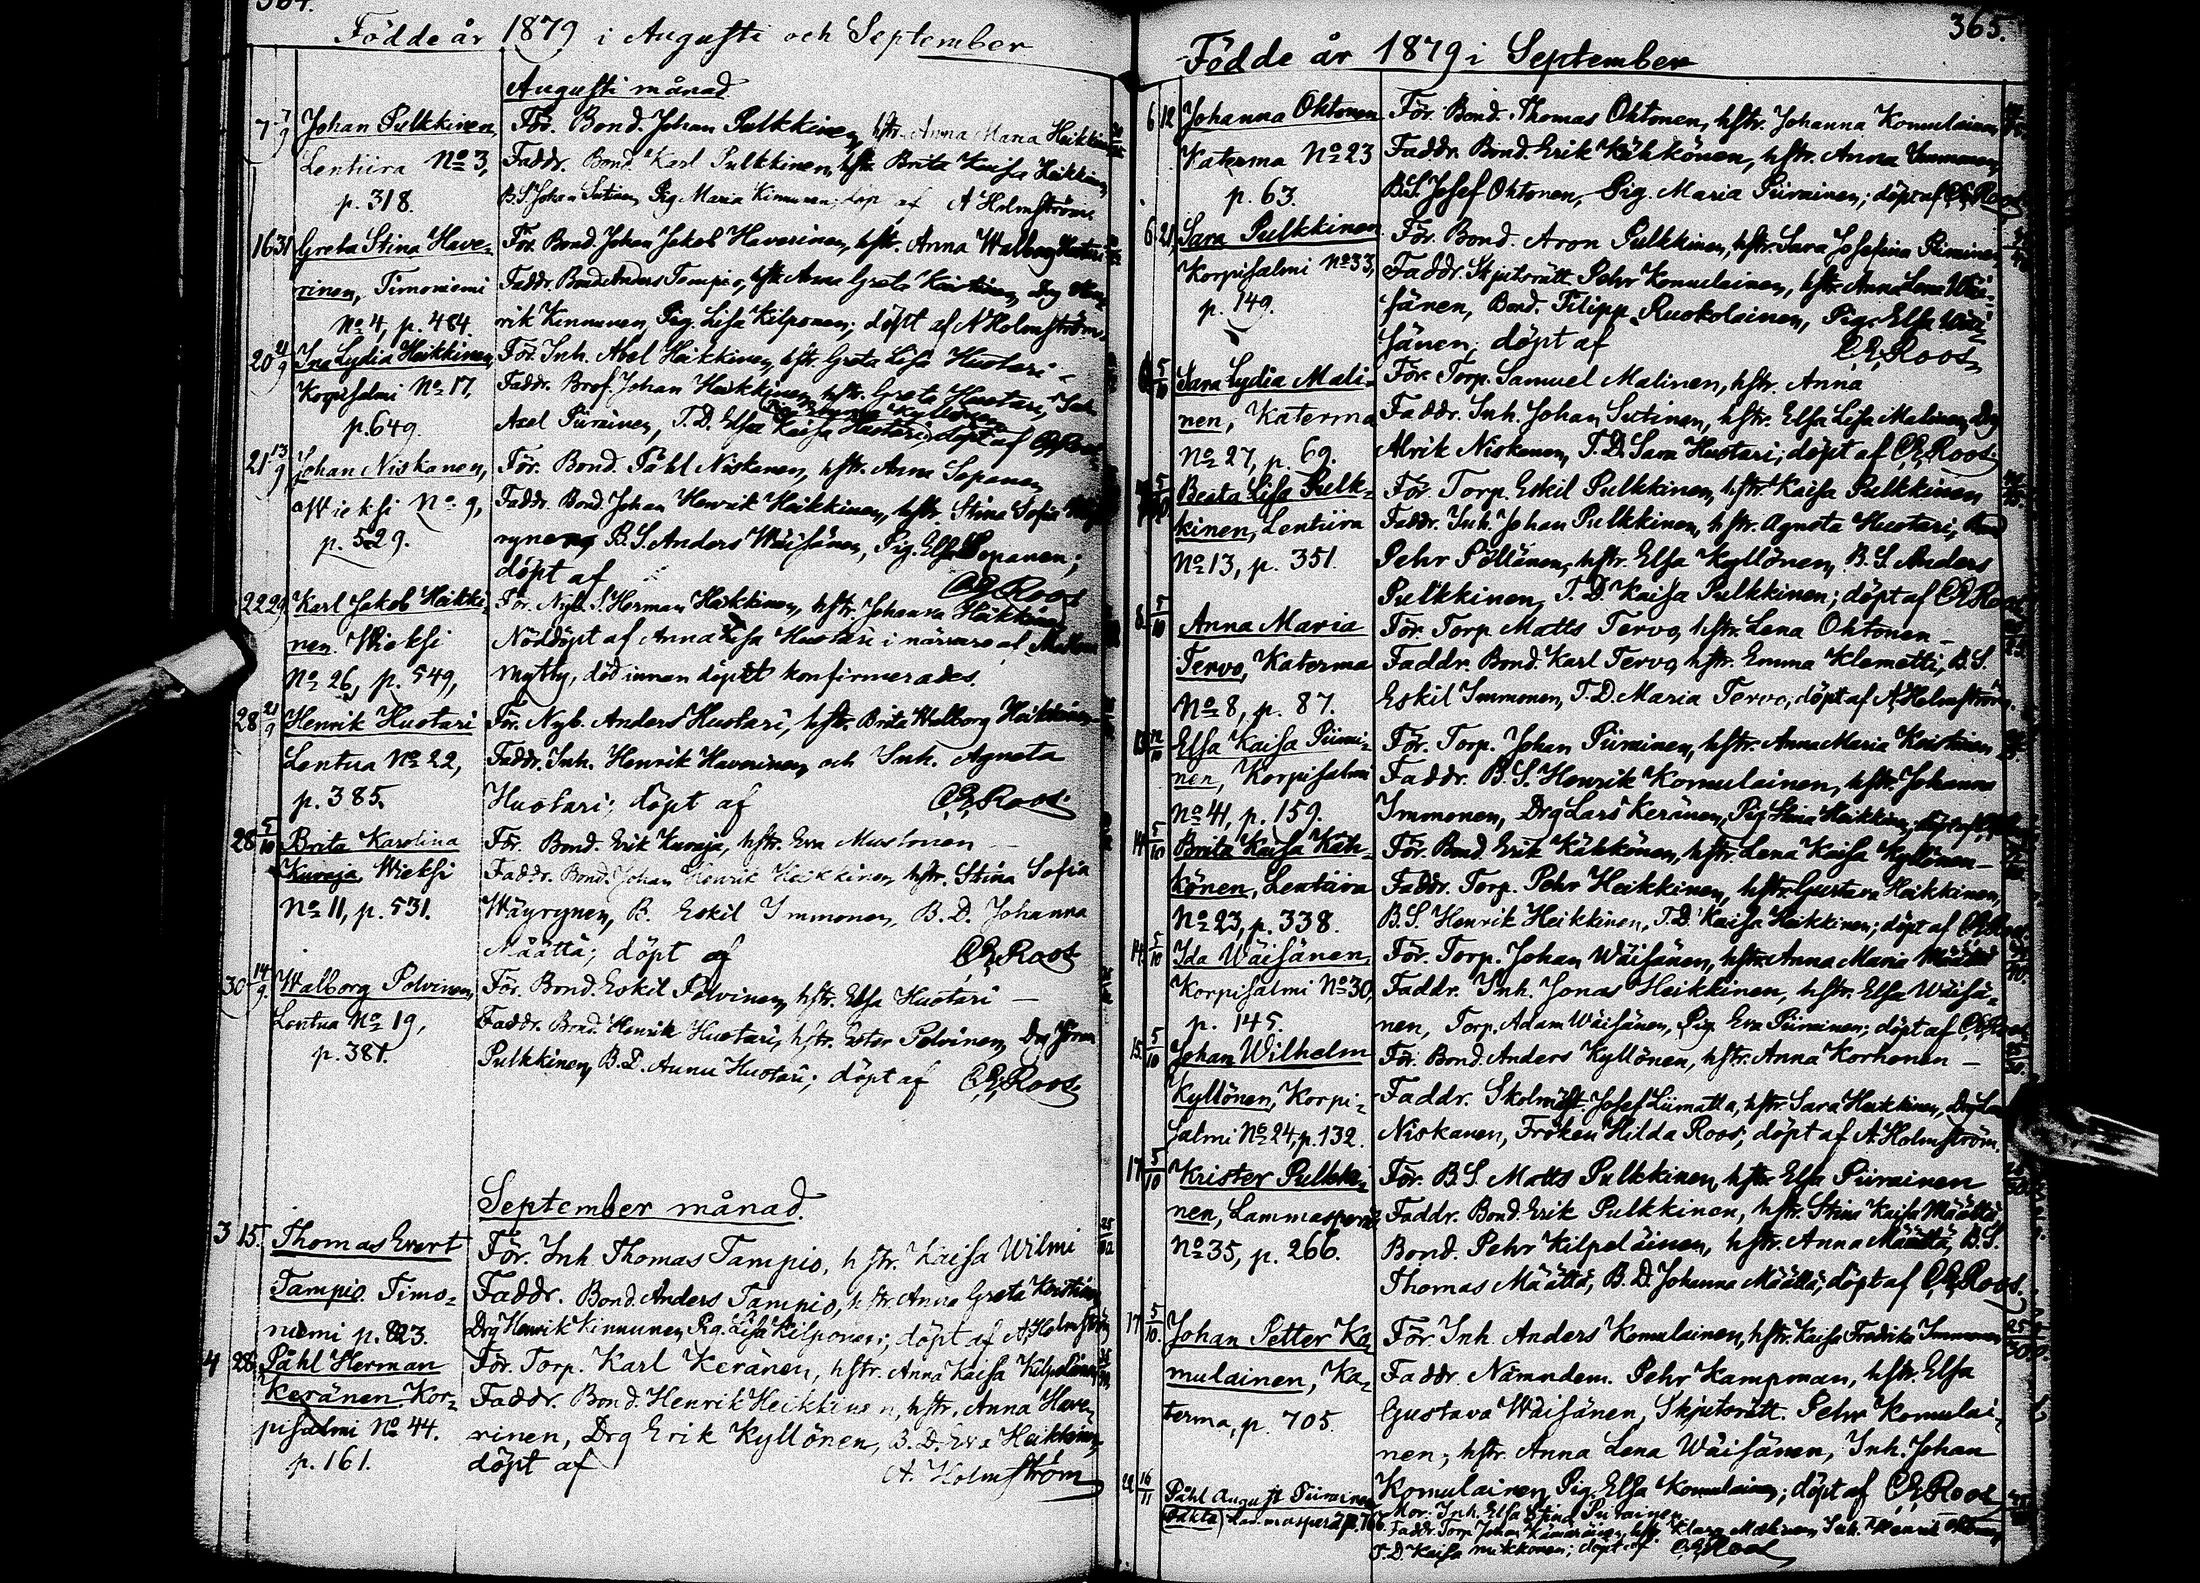 364.
Födde år 1879 i Augusti och September
Augusti månad
7 7/9 Johan Pulkkinen, För. Bond. Johan Pulkkinen, hstr. Anna Maria Heikkinen
Lentiira No 3, Faddr. Bond. Karl Pulkkinen, hstr. Brita Kaisa Heikkinen,
p. 318. B.S. Johan Sutinen, Pig. Maria Kinnunen; döpt af A Holmström.
16 31 Greta Stina Have- För. Bond. Johan Jakob Haverinen, hstr. Anna Walborg Huotari
rinen, Timoniemi Faddr. Bond. Anders Tampio, hstr. Anna Greta Keistinen, Drg Hen-
No 4, p. 484. rik Kinnunen, Pig. Lisa Kilponen; döpt af A Holmström.
20 21/9 Ina Lydia Heikkinen, För. Inh. Abel Heikkinen, hstr. Greta Lisa Huotari -
Korpisalmi No 17, Faddr. Brof. Johan Heikkinen, hstr. Greta Huotari,
p. 649. Axel Piirainen, T.D. Elsa Kaisa Huotari; döpt af CERoos
21 13/9 Johan Niskanen, För. Bond. Påhl Niskanen, hstr. Anna Sepänen
Wieksi No 9, Faddr. Bond. Johan Henrik Heikkinen, hstr. Stina Sofia
p. 529. rynen, B.S. Anders Wäisänen, Pig. Elsa Sepänen;
döpt af CERoos
22 29 Karl Jakob Heikki- För. Nyb. S. Herman Heikkinen, hstr. Johanna Heikkinen
nen. Wieksi Nöddöpt af Anna Lisa Huotari i närvaro af
No 26, p. 549, Mytty, död innan döpet konfirmerades.
28 21/9 Henrik Huotari För. Nyb. Anders Huotari, hstr. Brita Walborg Heikkinen
Lentua No 22, Faddr. Inh. Henrik Haverinen, och Inh. Agneta
p. 385. Huotari; döpt af CERoos.
28 5/10 Brita Karolina För. Bond. Erik Kuvaja, hstr. Eva Mustonen -
Kuvaja, Wieksi Faddr. Bond. Johan Henrik Heikkinen, hstr. Stina Sofia
No 11, p. 531. Wäyrynen, B. Eskil Immonen, B.D. Johanna
Määttä; döpt af CERoos
30 14/9 Walborg Polvinen, För. Bond. Eskil Polvinen, hstr. Elsa Huotari -
Lentua No 19, Faddr. Bond. Henrik Huotari, hstr. Ester Polvinen, Drg Jöran
p. 381. Pulkkinen, B.D. Anna Huotari; döpt af CERoos
September månad.
3 15. Thomas Evert För. Inh Thomas Tampio, hstr. Kaisa Wilmi
Tampio. Timo- Faddr. Bond. Anders Tampio, hstr. Anna Greta Keistinen
niemi p. 823. Drg Henrik Kinnunen, Pig. Lisa Kilponen; döpt af A. Holmström
4 28 Påhl Herman För. Torp. Karl Keränen, hstr. Anna Kaisa Kilpeläinen
Keränen Kor- Faddr. Bond. Henrik Heikkinen, hstr. Anna Have-
pisalmi No 44. rinen, Drg Erik Kyllönen, B.D. Eva Heikkinen,
p. 161. döpt af A. Holmström
365.
Födde år 1879 i September
6 12 Johanna Ohtonen För. Bond. Thomas Ohtonen, hstr. Johanna Komulainen
Katerma No 23 Faddr. Bond. Erik Kähkönen, hstr. Anna Immonen,
p. 63. B.S. Josef Ohtonen, Pig. Maria Piirainen; döpt af CERoos
6 21 Sara Pulkkinen För. Bond. Aron Pulkkinen, hstr. Sara Josefina Piirainen
Korpisalmi No 33, Faddr. Skjutsrätt. Pehr Komulainen, hstr. Anna Lena Wäi-
p. 149. sänen, Bond. Filipp Ruokolainen, Pig. Elsa Wäi-
sänen; döpt af CERoos
5/10 Sara Lydia Mali- För. Torp. Samuel Malinen, hstr. Anna
nen, Katerma Faddr. Inh. Johan Sutinen, hstr. Elsa Lisa Malinen, Drg
No 27, p. 69. Alrik Niskanen, T.D. Sara Huotari; döpt af CERoos
Beata Lisa Pulk- För. Torp. Eskil Pulkkinen, hstr. Kaisa Pulkkinen
kinen, Lentiira Faddr. Inh. Johan Pulkkinen, hstr. Agneta Huotari, Bond
No 13, p. 351. Pehr Pöllänen, hstr. Elsa Kyllönen, B.S. Anders
Pulkkinen, T.D. Kaisa Pulkkinen; döpt af CERoos
8 5/10 Anna Maria För. Torp. Matts Tervo, hstr. Lena Ohtonen -
Tervo, Katerma Faddr. Bond. Karl Tervo, hstr. Emma Klemetti, B.S.
No 8, p. 87. Eskil Immonen, T.D. Maria Tervo; döpt af A Holmström.
13 12/10 Elsa Kaisa Piirai- För. Torp. Johan Piirainen, hstr. Anna Maria Keistinen
nen, Korpisalmi Faddr. B.S. Henrik Komulainen, hstr. Johanna
No 41, p. 159. Immonen, Drg Lars Keränen, Pig Stina Heikkinen; döpt af
14 5/10 Brita Kaisa Käh- För. Bond. Erik Kähkönen, hstr. Lena Kaisa Kyllönen -
könen, Lentiira Faddr. Torp. Pehr Heikkinen, hstr. Gustava Heikkinen,
No 23, p. 338. B.S. Henrik Heikkinen, T.D. Kaisa Heikkinen; döpt af CERoos
14 5/10 Ida Wäisänen, För. Torp. Johan Wäisänen, hstr. Anna Maria Määttä
Korpisalmi No 30, Faddr. Inh. Jonas Heikkinen, hstr. Elsa Wäisä-
p. 145. nen, Torp. Adam Wäisänen, Pig. Eva Piirainen; döpt af CERoos
15. 5/10 Johan Wilhelm För. Bond. Anders Kyllönen, hstr. Anna Korhonen -
Kyllönen, Korpi- Faddr. Skolmäst. Josef Liimatta, hstr. Sara Heikkinen, Drg
salmi No 24, p. 132. Niskanen, Fröken Hilda Roos; döpt af A. Holmström.
17 5/10 Krister Pulkki- För. B.S. Matts Pulkkinen, hstr. Elsa Piirainen
nen, Lammasperä Faddr. Bond. Erik Pulkkinen, hstr. Stina Kaisa Määttä,
No 35, p. 266. Bond. Pehr Kilpeläinen, hstr. Anna Määttä, B.S.
Thomas Määttä, B.D. Johanna Määttä; döpt af CERoos.
17 5/10. Johan Petter Ko- För. Inh. Anders Komulainen, hstr. Kaisa Fredrika Immonen
mulainen, Ka- Faddr Nämndem. Pehr Kampman, hstr. Elsa
terma, p. 705. Gustava Wäisänen, Skjutsrätt. Pehr Komulai-
nen, hstr. Anna Lena Wäisänen, Inh. Johan
Komulainen, Pig. Elsa Komulainen; döpt af CERoos
22 16/11 Påhl August Piirainen Mor. Inh. Elsa Stina Piirainen
(oäkta) Lammasperä p. 766. Faddr. Torp. Johan Kämäräinen, hstr Klara Malinen, Inh. Henrik
T.D. Kaisa Mikkonen; döpt af CERoos